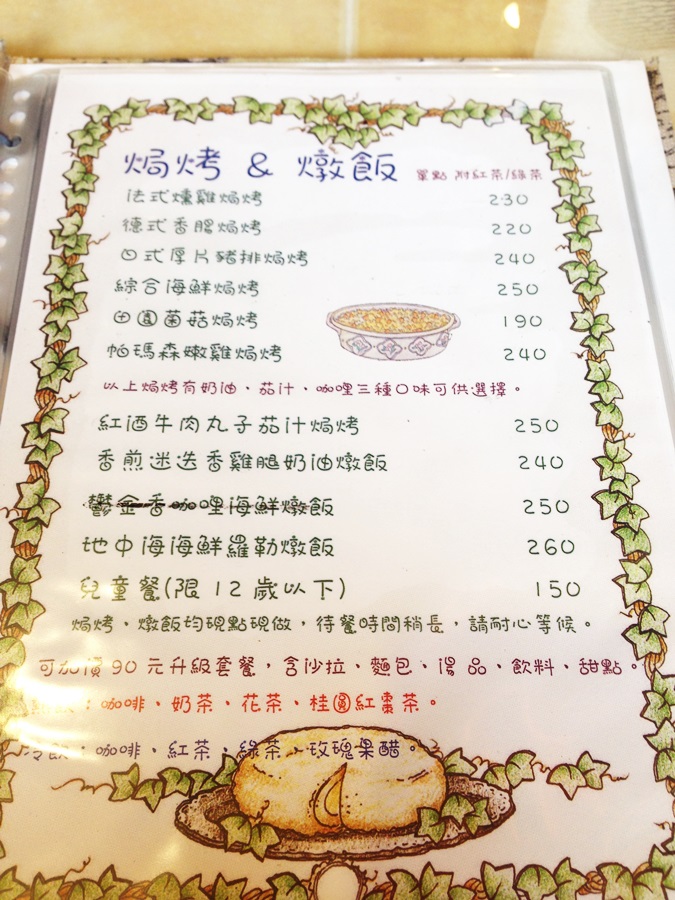 焗烤 & 燉飯 單點 附紅茶/綠茶
法式燻雞焗烤 230
德式香腸焗烤 220
日式厚片豬排焗烤 240
綜合海鮮焗烤 250
田園菌菇焗烤 190
帕瑪森嫩雞焗烤 240
以上焗烤有奶油、茄汁、咖哩三種口味可供選擇。
紅酒牛肉丸子茄汁焗烤 250
香煎迷迭香雞腿奶油燉飯 240
鬱金香咖哩海鮮燉飯 250
地中海海鮮羅勒燉飯 260
兒童餐(限 12 歲以下) 150
焗烤、燉飯均現點現做，待餐時間稍長，請耐心等候。
可加價 90 元升級套餐，含沙拉、麵包、湯品、飲料、甜點。
熱飲：咖啡、奶茶、花茶、桂圓紅棗茶。
冷飲：咖啡、紅茶、綠茶、玫瑰果醋。